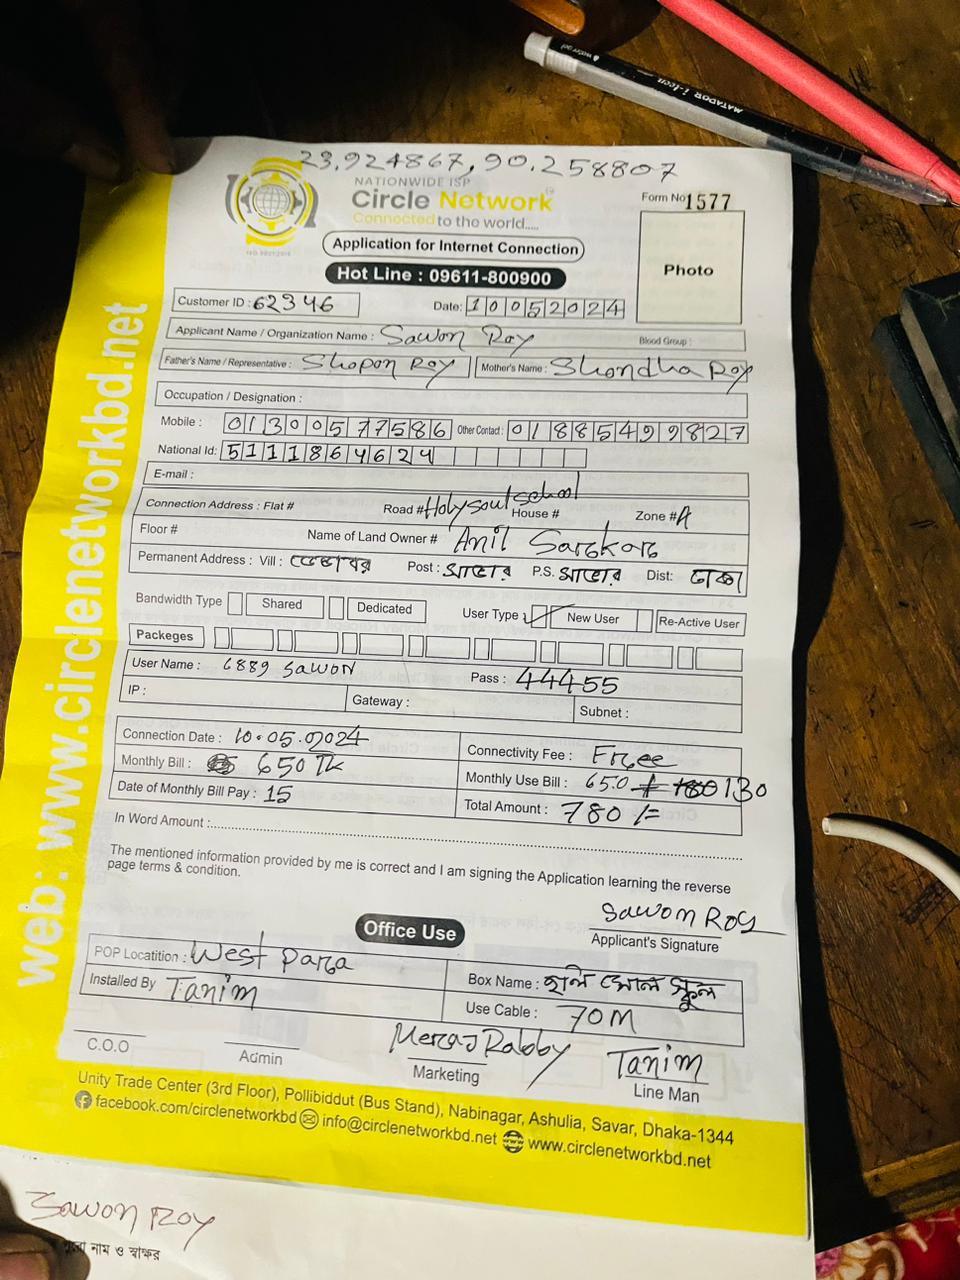 23.924867, 90.258807
NATIONWIDE ISP
Circle Network
Connected to the world.....
ISO 9001:2015
Form No 1577
Application for Internet Connection
Hot Line : 09611-800900
Photo
Customer ID : 62346 Date: 10052024
Applicant Name / Organization Name : Sawon Roy Blood Group :
Father's Name / Representative : Shopon Roy Mother's Name : Shondha Roy
Occupation / Designation :
Mobile : 01300577586 Other Contact : 01885499827
National Id: 5111864624
E-mail :
Connection Address : Flat # Road # Holy soul school House # Zone # A
Floor # Name of Land Owner # Anil Sarkar
Permanent Address : Vill : Post : সাভার P.S. সাভার Dist: ঢাকা
Bandwidth Type Shared Dedicated User Type : New User Re-Active User
Packeges
User Name : 6889 sawon Pass : 44455
IP : Gateway : Subnet :
Connection Date : 10.05.2024 Connectivity Fee : Free
Monthly Bill : 650 Tk Monthly Use Bill : 650 + 130
Date of Monthly Bill Pay : 15 Total Amount : 780 /=
In Word Amount :
The mentioned information provided by me is correct and I am signing the Application learning the reverse
page terms & condition.
Sawon Roy
Applicant's Signature
Office Use
POP Locatition : West para Box Name : হলি সোল স্কুল
Installed By Tanim Use Cable : 70M
C.O.O Admin Meraj Rabby Marketing Tanim Line Man
Unity Trade Center (3rd Floor), Pollibiddut (Bus Stand), Nabinagar, Ashulia, Savar, Dhaka-1344
facebook.com/circlenetworkbd info@circlenetworkbd.net www.circlenetworkbd.net
web: www.circlenetworkbd.net
Sawon Roy
নাম ও স্বাক্ষর
MATADOR i-teen